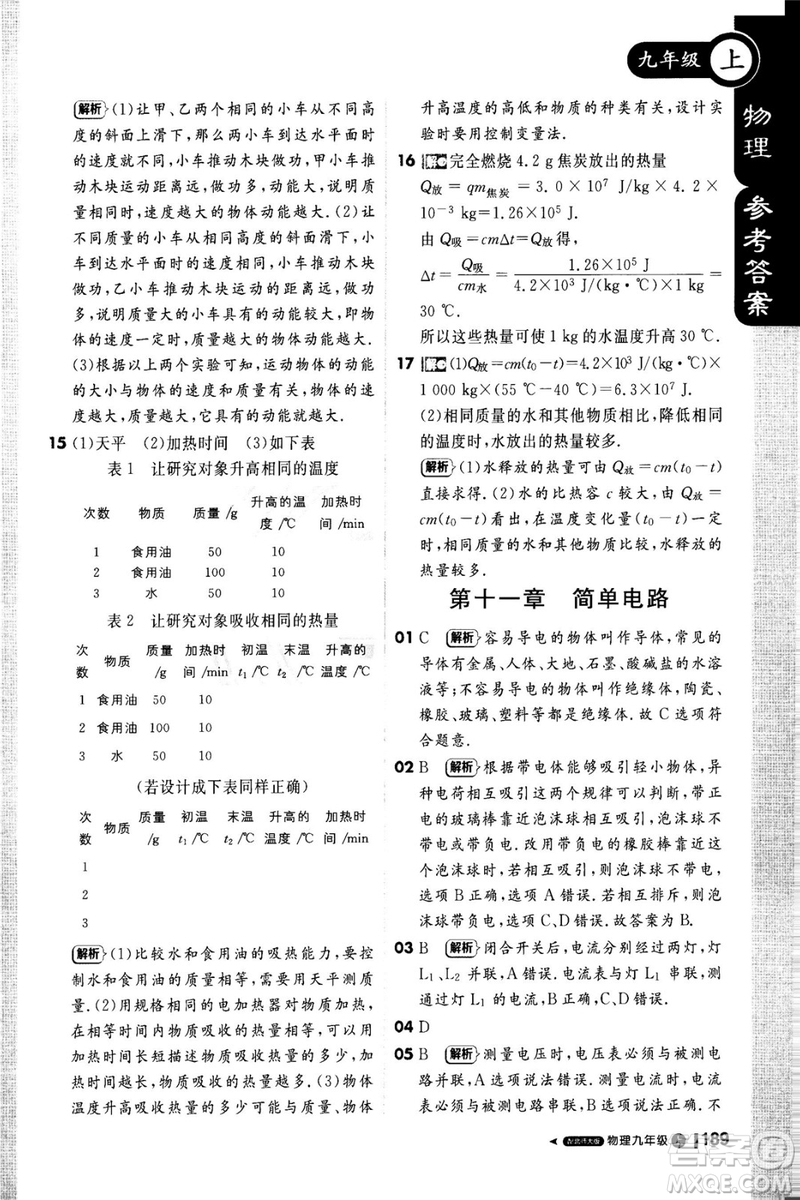 九年级 上
物理 参考答案
解析 (1)让甲、乙两个相同的小车从不同高
度的斜面上滑下，那么两车到达水平面时
的速度就不同，小车推动木块做功，甲小车推
动木块运动距离远，做功多，动能大，说明质量
相同时，速度越大的物体动能越大．(2)让
不同质量的小车从相同高度的斜面滑下，
到达水平面的速度相同，小车推动木块
做功，乙小车推动木块运动的距离远，做功
多，说明质量大的小车具有的动能较大，即物
体的速度一定时，质量越大的物体动能越大．
(3)根据以上两个实验可知，运动物体的动能
的大小与物体的速度和质量有关，速度
越大，质量越大，它具有的动能就越大．
15 (1)天平 (2)加热时间 (3)如下表
表1 让研究对象升高相同的温度
次数 物质 质量/g 升高的温度/℃ 加热时间/min
1 食用油 50 10
2 食用油 100 10
3 水 50 10
表2 让研究对象吸收相同的热量
次数 物质 质量/g 加热时间/min 初温t₁/℃ 末温t₂/℃ 升高的温度/℃
1 食用油 50 10
2 食用油 100 10
3 水 50 10
(若设计成下表同样正确)
次数 物质 质量/g 初温t₁/℃ 末温t₂/℃ 升高的温度/℃ 加热时间/min
1
2
3
解析 (1)比较水和食用油的吸热能力，要控
制水和食用油的质量相等，需要用天平测质
量．(2)用规格相同的电加热器对物质加热，
在相等时间内物质吸收的热量相等，可以用
加热时间长短描述物质吸收热量的多少，加
热时间越长，物质吸收的热量越多．(3)物体
温度升高吸收热量的多少可能与质量、物体
升高温度的高低和物质的种类有关，设计实
验时要用控制变量法．
16 完全燃烧4.2 g焦炭放出的热量
Q放＝qm焦炭＝3.0×10⁷ J/kg×4.2×
10⁻³ kg＝1.26×10⁵ J．
由Q吸＝cmΔt＝Q放得，
Δt＝Q吸/cm水＝1.26×10⁵ J/4.2×10³ J/(kg·℃)×1 kg＝
30 ℃．
所以这些热量可使1 kg的水温度升高30 ℃．
17 (1)Q放＝cm(t₀－t)＝4.2×10³ J/(kg·℃)×
1 000 kg×(55 ℃－40 ℃)＝6.3×10⁷ J．
(2)相同质量的水和其他物质相比，降低相同的
温度时，水放出的热量较多．
解析 (1)水释放的热量可由Q放＝cm(t₀－t)
直接求得．(2)水的比热容c较大，由Q放＝
cm(t₀－t)看出，在温度变化量(t₀－t)一定
时，相同质量的水和其他物质比较，水释放的
热量较多．
第十一章 简单电路
01 C 解析 容易导电的物体叫作导体，常见的
导体有金属、人体、大地、石墨、酸碱盐的水溶
液等；不容易导电的物体叫作绝缘体，陶瓷、
橡胶、玻璃、塑料等都是绝缘体．故C选项符
合题意．
02 B 解析 根据带电体能够吸引轻小物体，异
种电荷相互吸引的规律可以判断，用带正电
的玻璃棒靠近泡沫球时相互吸引，泡沫球不
带电或带负电．用带负电的橡胶棒靠近另一
个泡沫球时，若相互吸引，则泡沫球不带电或带正
电，选项B正确，选项A错误．若相互排斥，则
泡沫球带负电，选项C、D错误．故选B．
03 B 解析 闭合开关后，电流分别流过两灯，灯
L₁、L₂并联，A错误．电流表与灯L₁串联，测
通过灯L₁的电流，B正确，C、D错误．
04 D
05 B 解析 测量电压时，电压表必须与被测电
路并联，A选项说法错误．测量电流时，电流
表必须与被测电路串联，B选项说法正确．不
配北师大版 物理九年级 上 189
答案圈
MXQE.COM